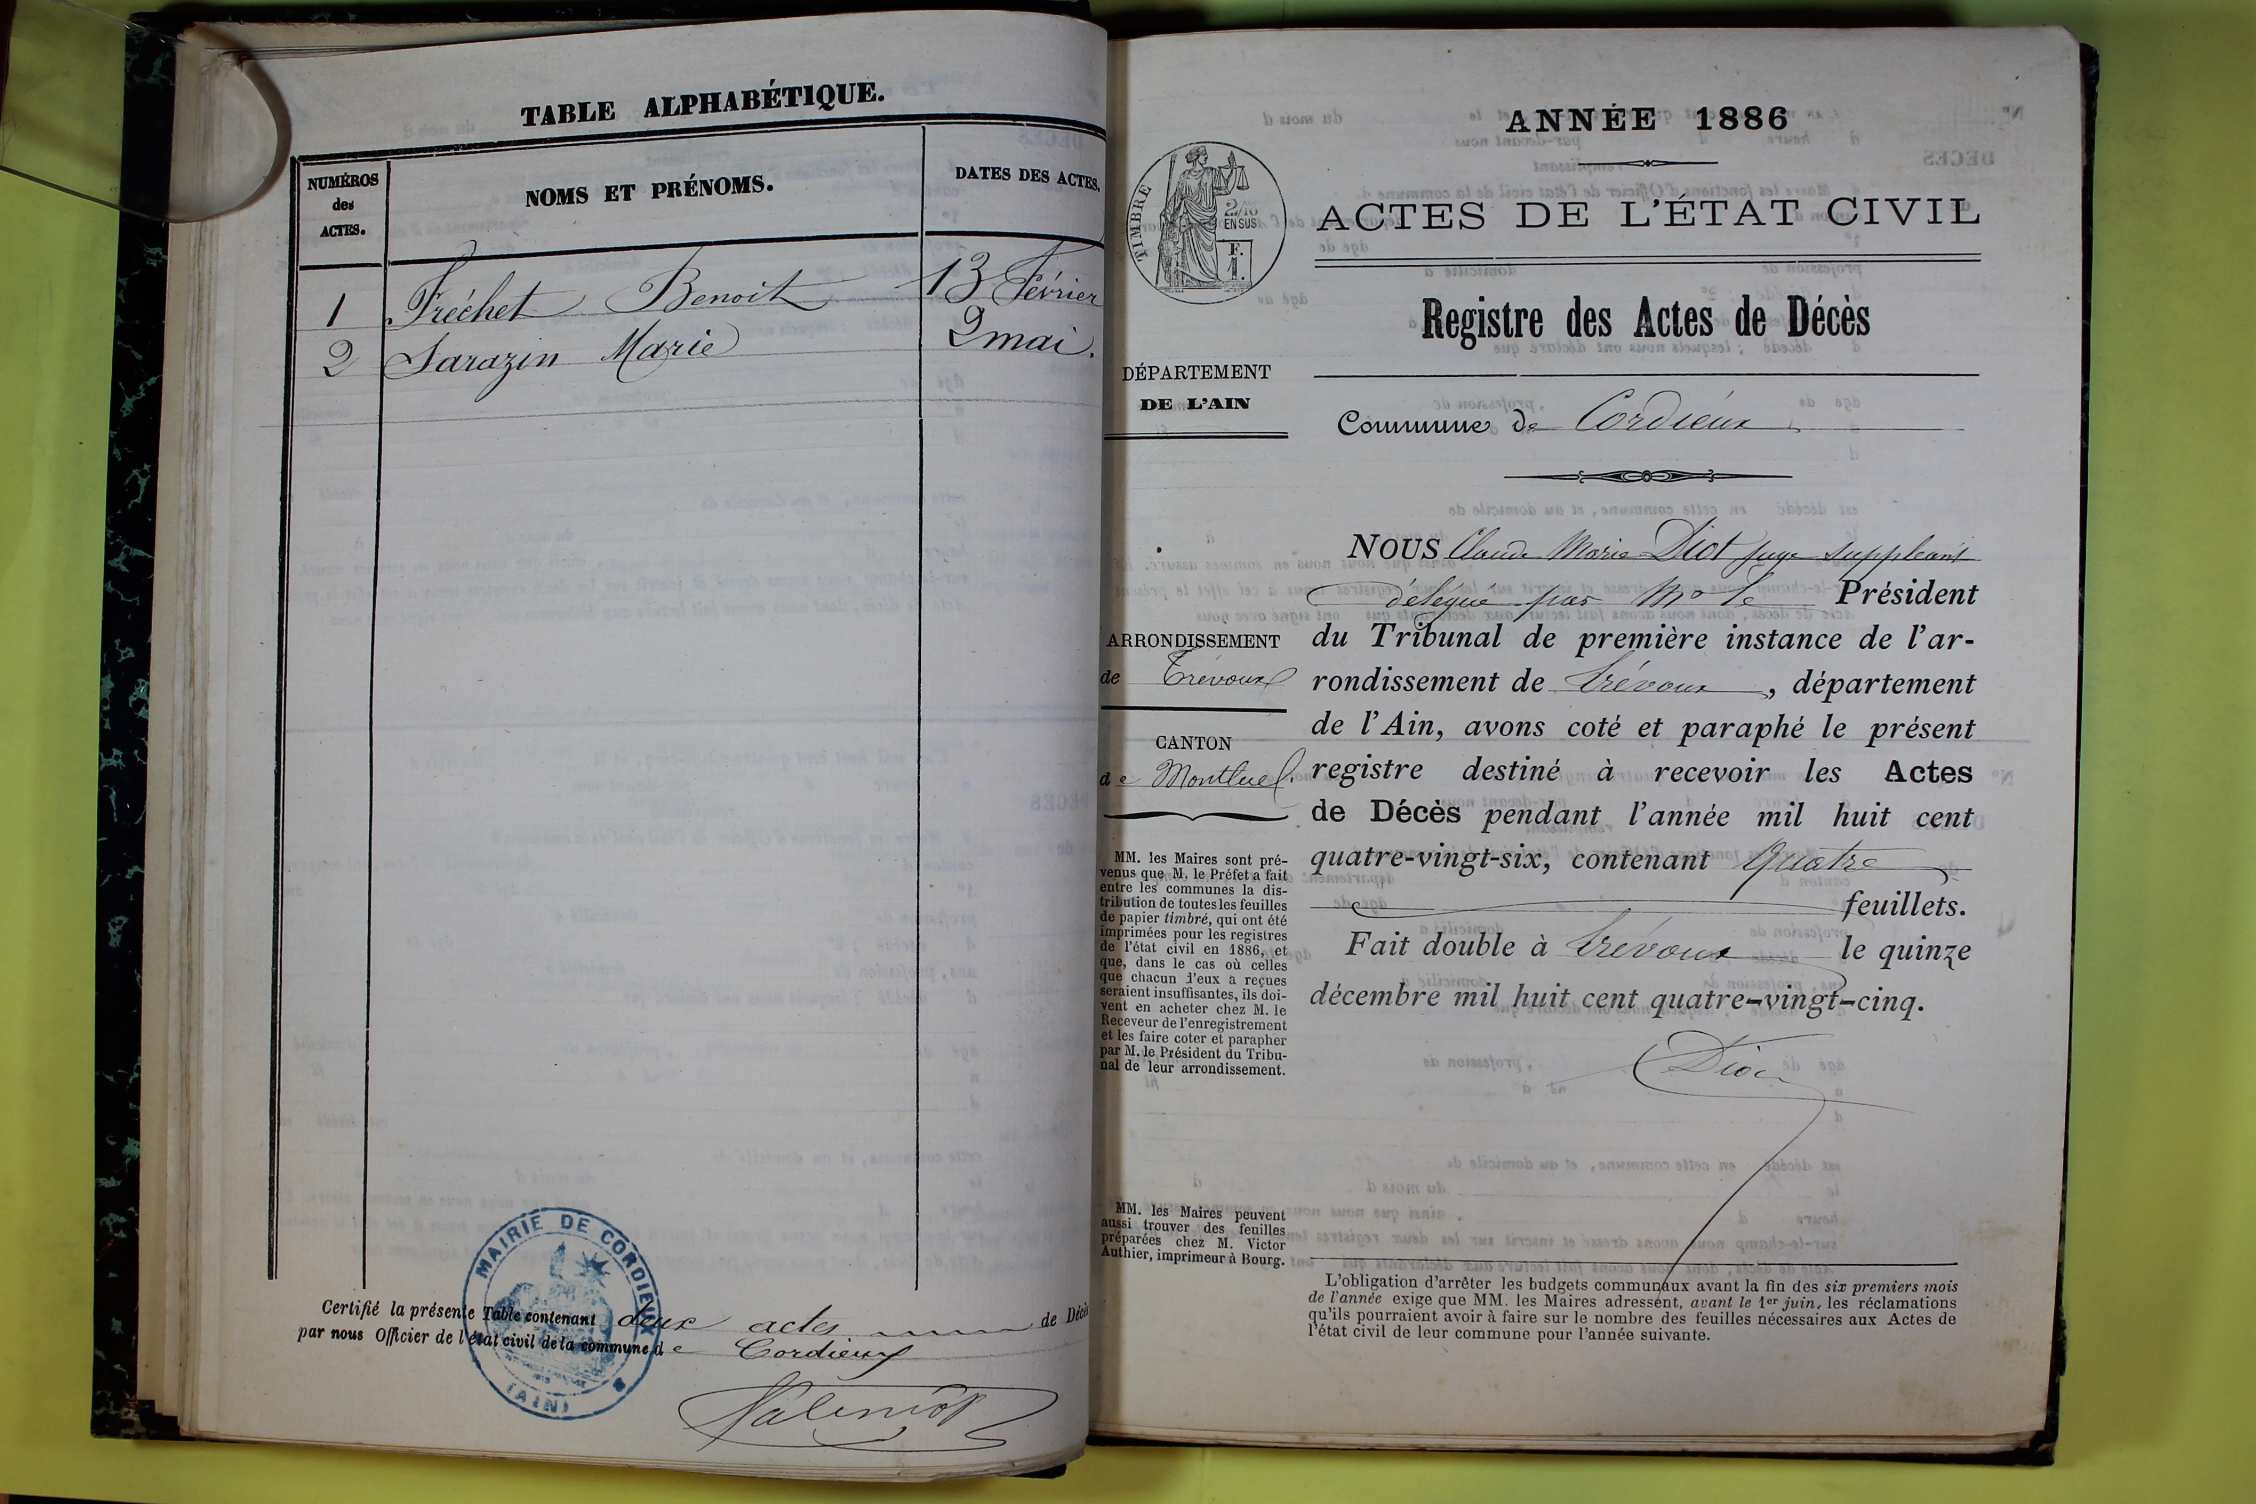 TABLE ALPHABÉTIQUE.
NUMÉROS
des
ACTES.
NOMS ET PRÉNOMS.
DATES DES ACTES.
1 Fréchet Benoit 13 Février
2 Sarazin Marie 2 mai.
MAIRIE DE CORDIEUX
(AIN)
Certifié la présente Table contenant deux actes de Décès
par nous Officier de l'état civil de la commune de Cordieux
ANNÉE 1886
ACTES DE L'ÉTAT CIVIL
TIMBRE
2/10
EN SUS
F.
1.
Registre des Actes de Décès
DÉPARTEMENT
DE L'AIN
Commune de Cordieux
ARRONDISSEMENT
de Trévoux
CANTON
de Montluel.
MM. les Maires sont pré-
venus que M. le Préfet a fait
entre les communes la dis-
tribution de toutes les feuilles
de papier timbré, qui ont été
imprimées pour les registres
de l'état civil en 1886, et
que, dans le cas où celles
que chacun d'eux a reçues
seraient insuffisantes, ils doi-
vent en acheter chez M. le
Receveur de l'enregistrement
et les faire coter et parapher
par M. le Président du Tribu-
nal de leur arrondissement.
MM. les Maires peuvent
aussi trouver des feuilles
préparées chez M. Victor
Authier, imprimeur à Bourg.
NOUS Claude Marie Diot juge suppléant
délégué par Mr le Président
du Tribunal de première instance de l'ar-
rondissement de Trévoux, département
de l'Ain, avons coté et paraphé le présent
registre destiné à recevoir les Actes
de Décès pendant l'année mil huit cent
quatre-vingt-six, contenant Quatre
feuillets.
Fait double à Trévoux le quinze
décembre mil huit cent quatre-vingt-cinq.
Diot
L'obligation d'arrêter les budgets communaux avant la fin des six premiers mois
de l'année exige que MM. les Maires adressent, avant le 1er juin, les réclamations
qu'ils pourraient avoir à faire sur le nombre des feuilles nécessaires aux Actes de
l'état civil de leur commune pour l'année suivante.